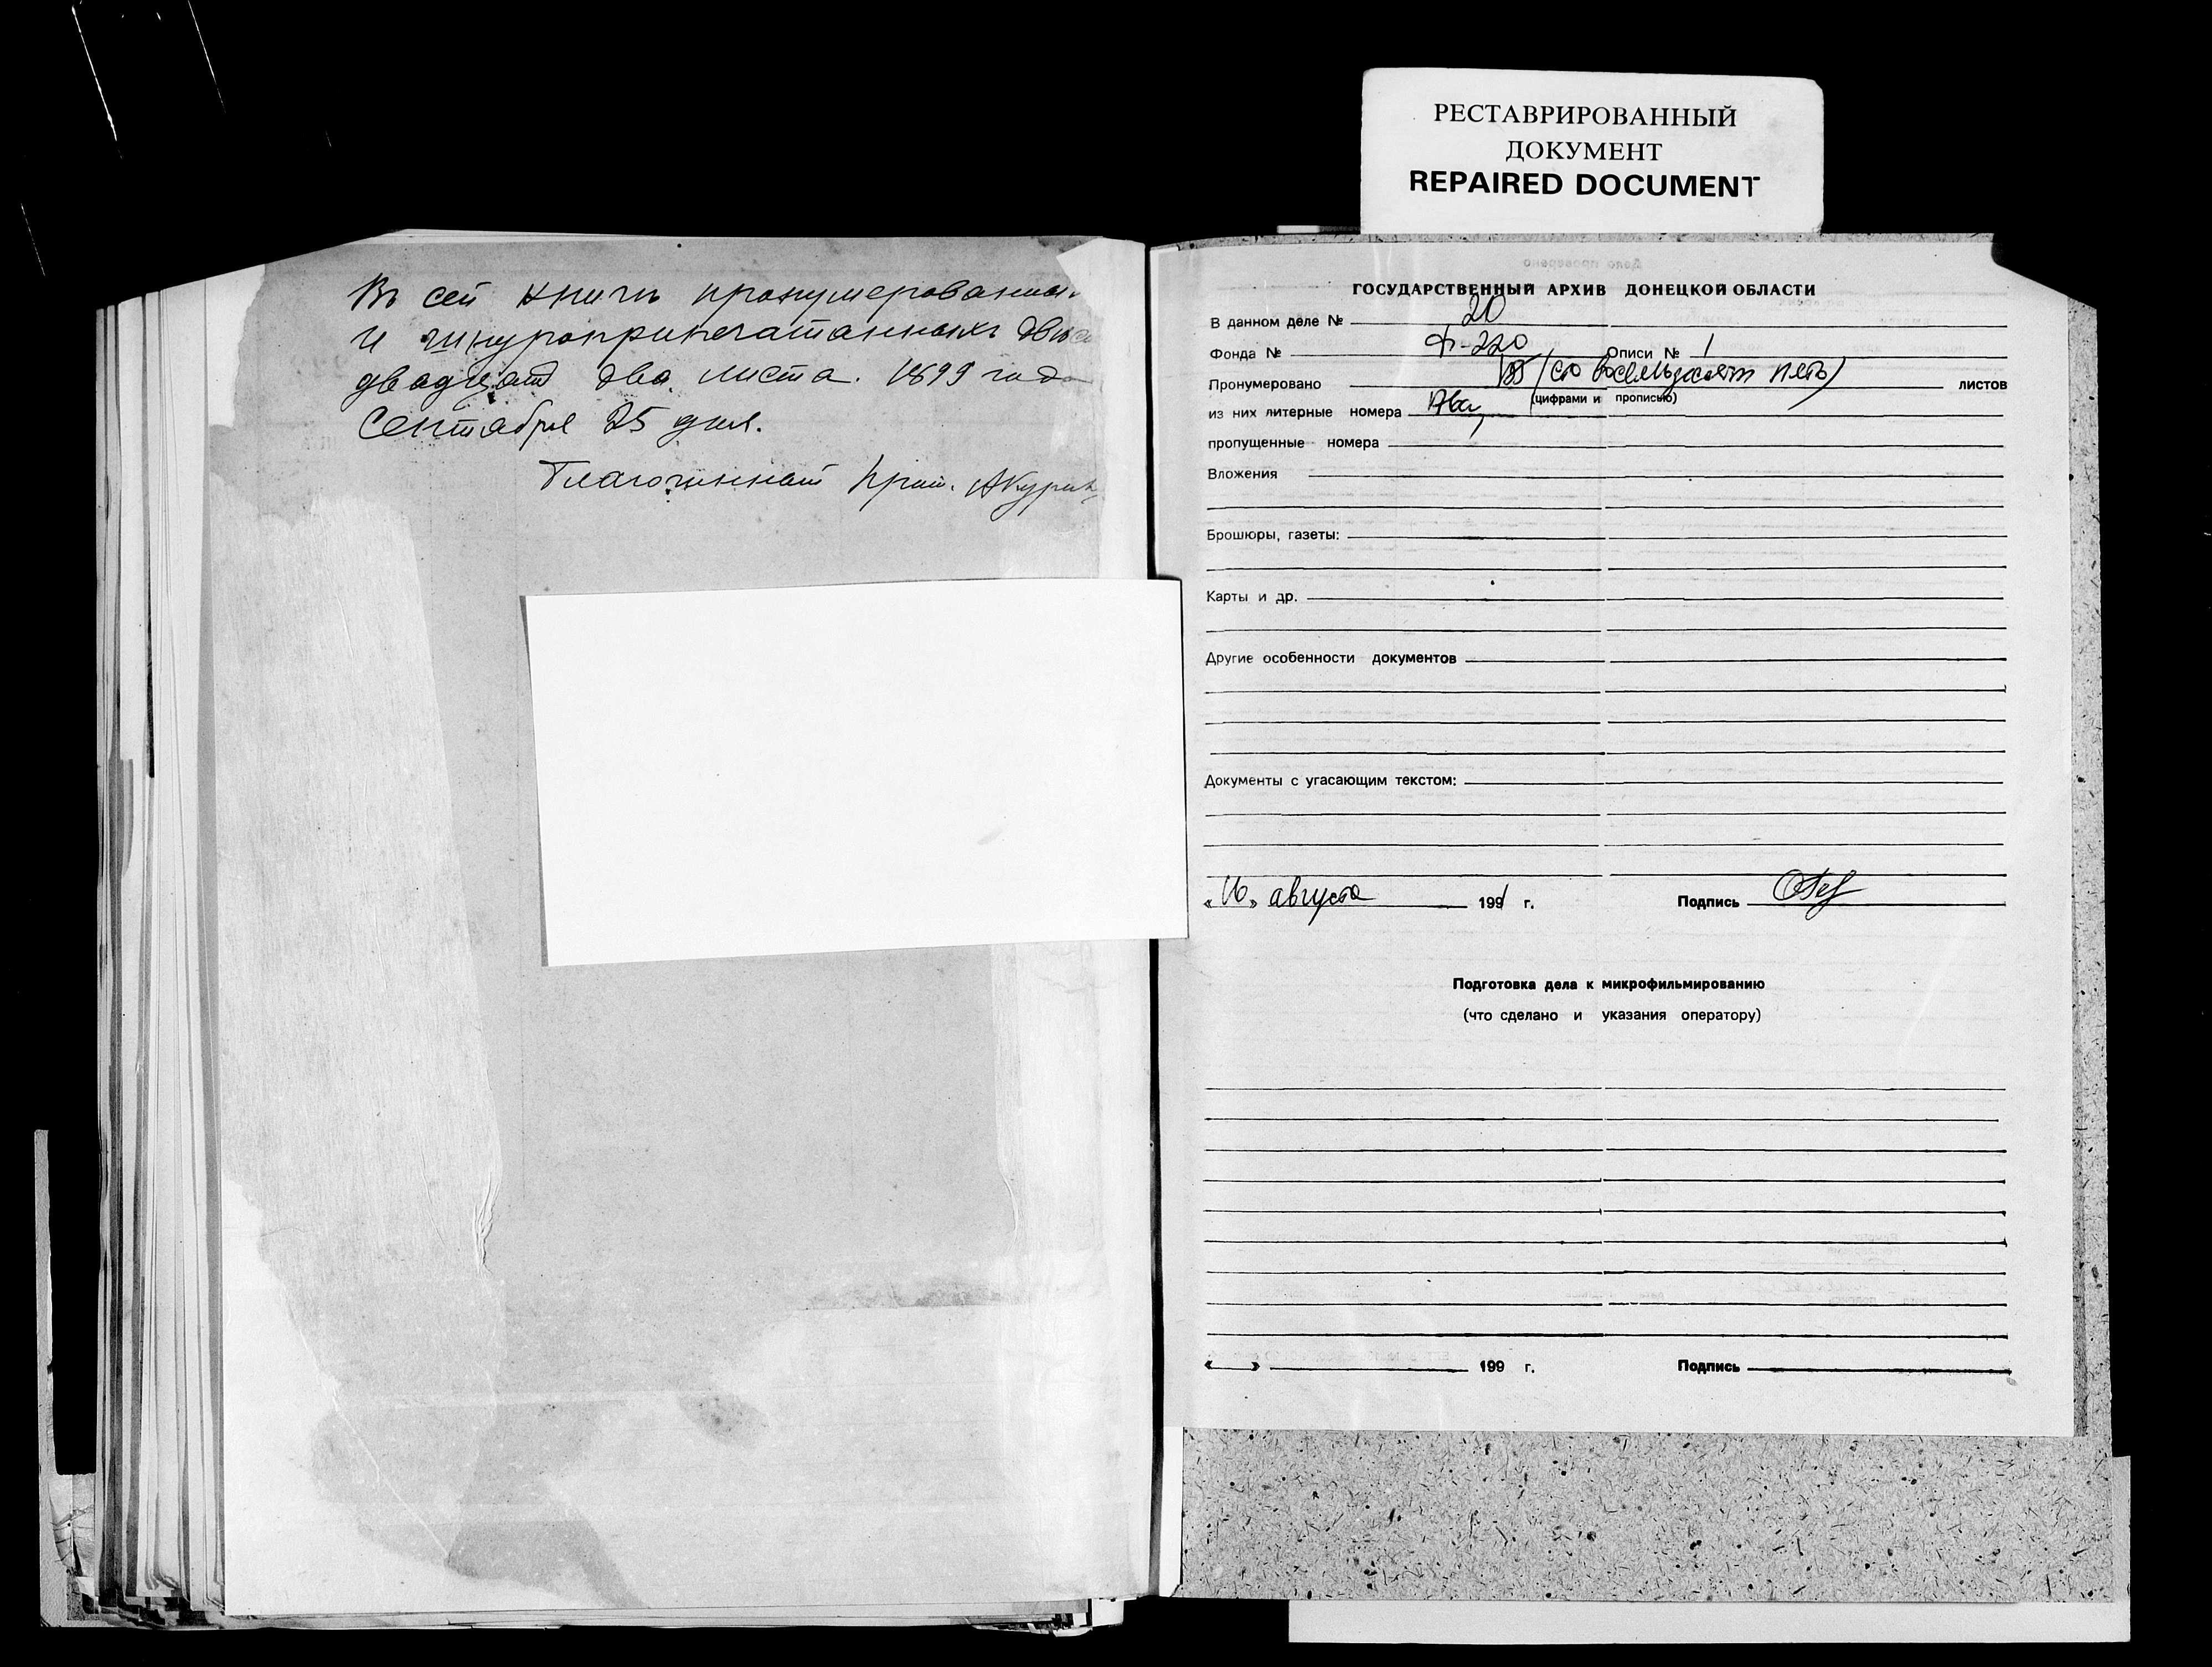 РЕСТАВРИРОВАННЫЙ
ДОКУМЕНТ
REPAIRED DOCUMENT
Въ сей книгѣ пронумерованныхъ
и шнуроприпечатанныхъ двѣс
двадцать два листа. 1899 года
Сентября 25 дня.
Благочинный Прот.
ГОСУДАРСТВЕННЫЙ АРХИВ ДОНЕЦКОЙ ОБЛАСТИ
В данном деле № 20
Фонда № Ф-220 Описи № 1
Пронумеровано 185 (сто восемьдесят пять) листов
(цифрами и прописью)
из них литерные номера два,
пропущенные номера
Вложения
Брошюры, газеты:
Карты и др.
Другие особенности документов
Документы с угасающим текстом:
« 16 » августа 1991 г. Подпись
Подготовка дела к микрофильмированию
(что сделано и указания оператору)
« » 199 г. Подпись